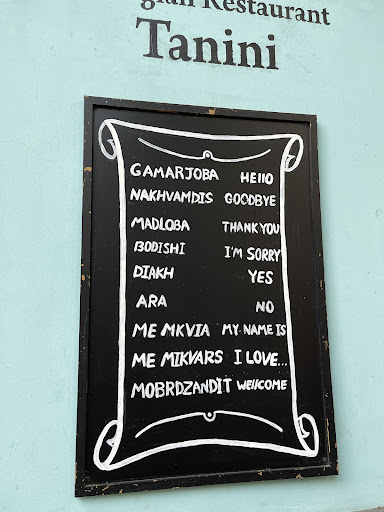 Restaurant
Tanini
GAMARJOBA HEllO
NAKHVAMDIS GOODBYE
MADLOBA THANK YOU
BODISHI I'M SORRY
DIAKH YES
ARA NO
ME MKVIA MY NAME IS
ME MIKVARS I LOVE...
MOBRDZANDIT WEllCOME